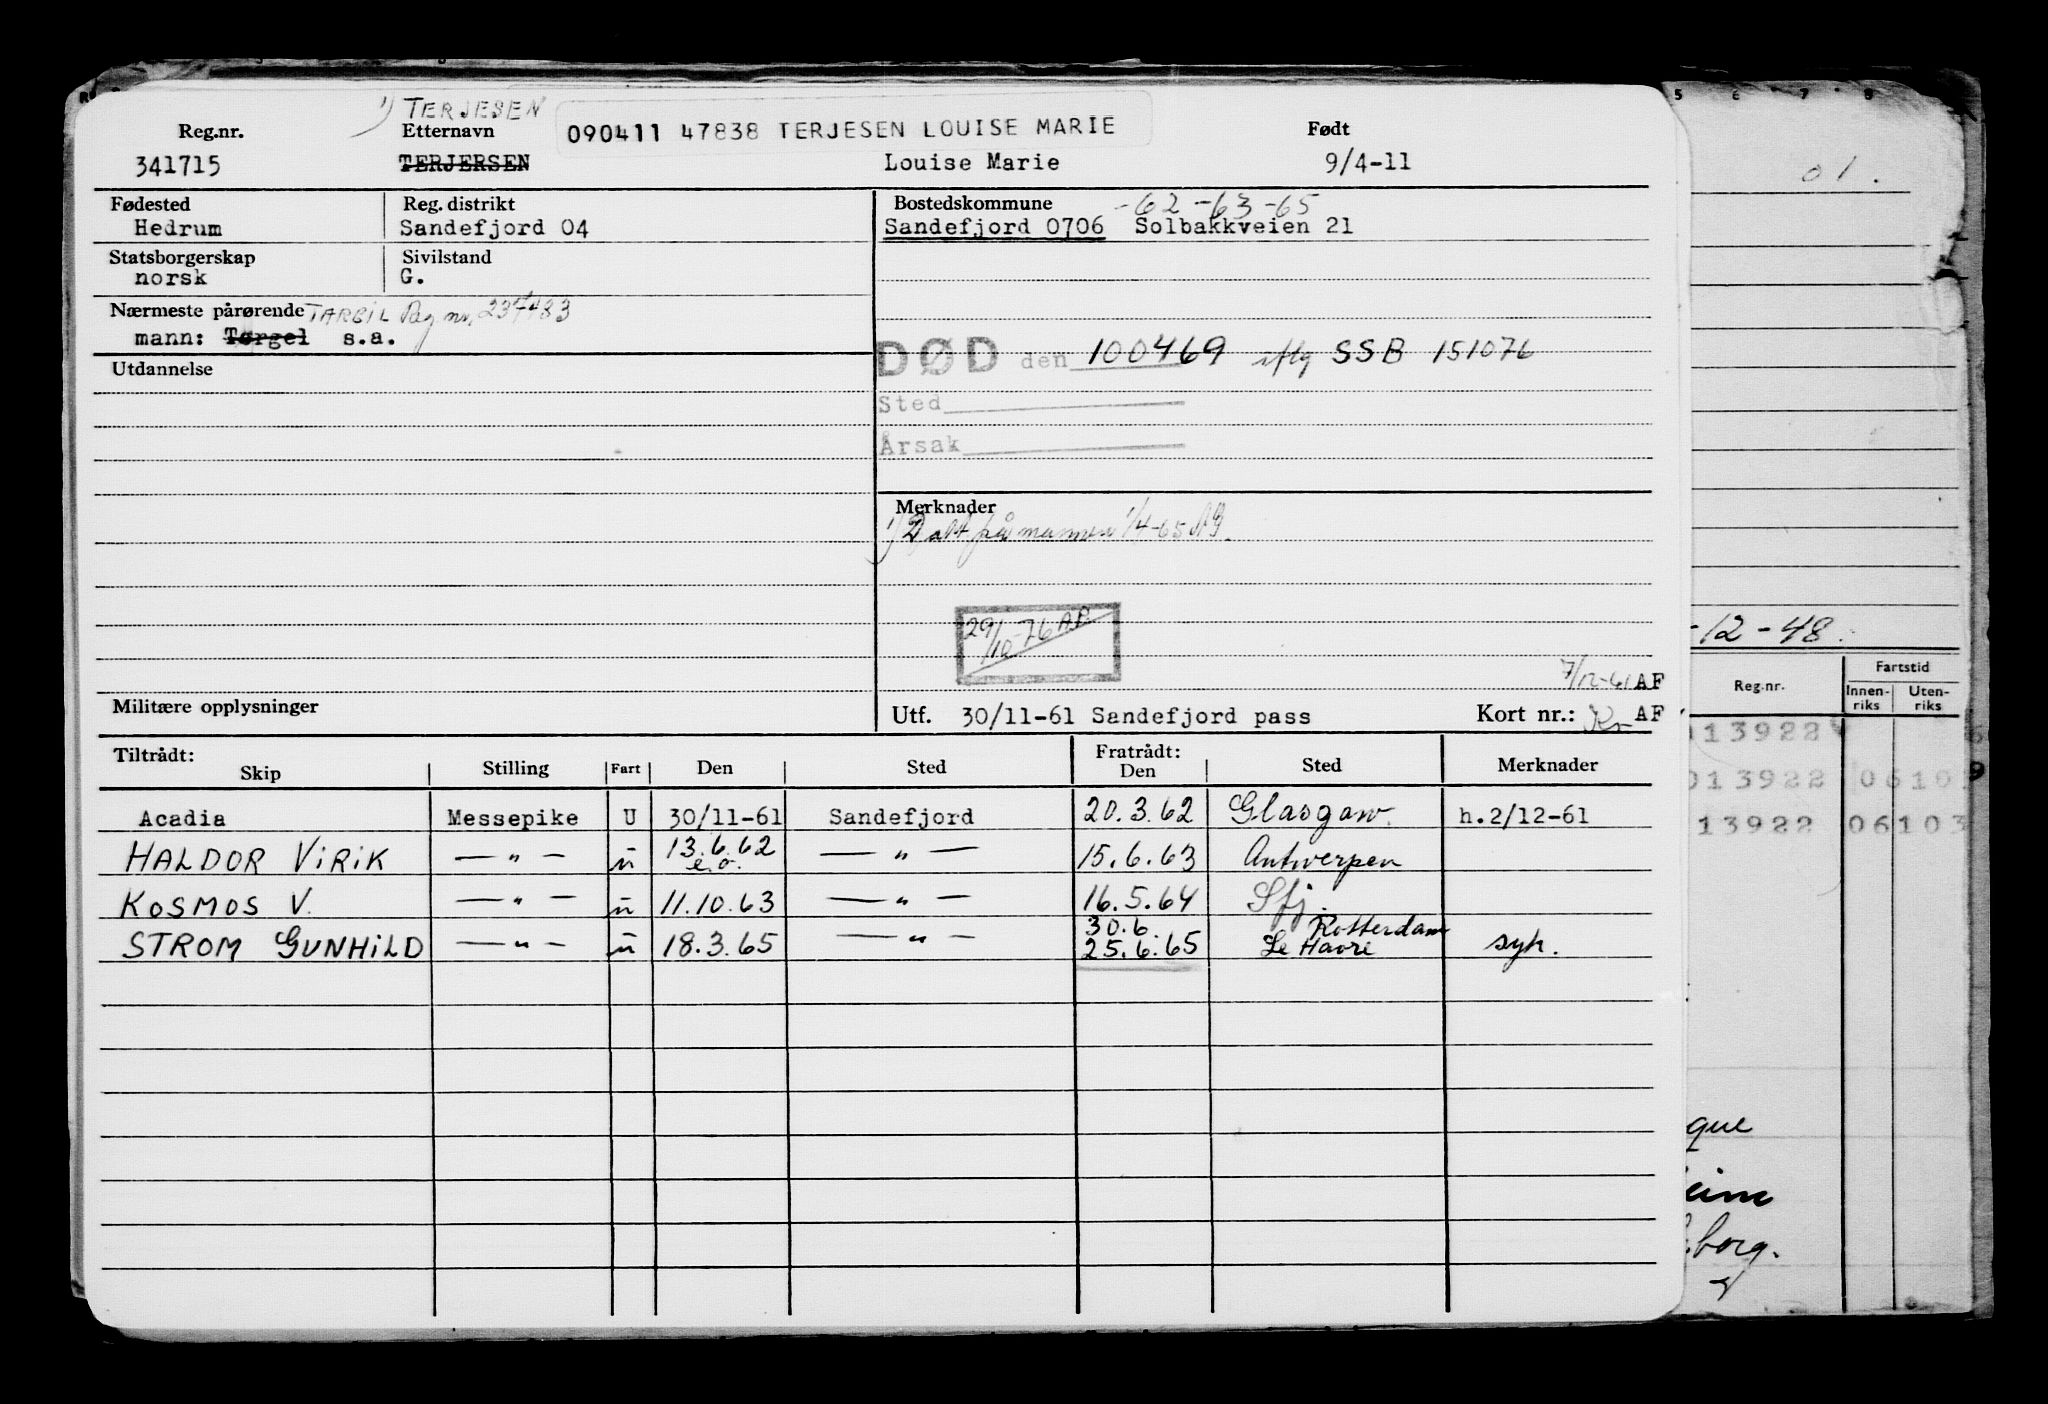 1) TERJESEN
Reg.nr. Etternavn 090411 47838 TERJESEN LOUISE MARIE Født
341715 TERJERSEN Louise Marie 9/4-11
Fødested Reg. distrikt Bostedskommune -62 -63 -65
Hedrum Sandefjord 04 Sandefjord 0706 Solbakkveien 21
Statsborgerskap Sivilstand
norsk G.
Nærmeste pårørende TARGIL Reg nr.
mann: Tørgel s.a.
DØD den 100469 iflg SSB 151076
Utdannelse
Sted
Årsak
Merknader
1) på mannen 1/4-65
29/10-76 A.P.
7/12-61 AF
Militære opplysninger Utf. 30/11-61 Sandefjord pass Kort nr.: AF
Tiltrådt: Fratrådt:
Skip Stilling Fart Den Sted Den Sted Merknader
Acadia Messepike U 30/11-61 Sandefjord 20.3.62 Glasgow. h.2/12-61
HALDOR VIRIK — " — u 13.6.62 e.o. — " — 15.6.63 Antwerpen
KOSMOS V. — " — u 11.10.63 — " — 16.5.64 Sfj.
30.6. Rotterdam
STROM GUNHILD — " — u 18.3.65 — " — 25.6.65 Le Havre syk.
5 6 7 8
01.
-12-48.
Reg.nr. Fartstid
Innen-riks Uten-riks
013922
013922 0610
13922 06103
que
eim
borg.